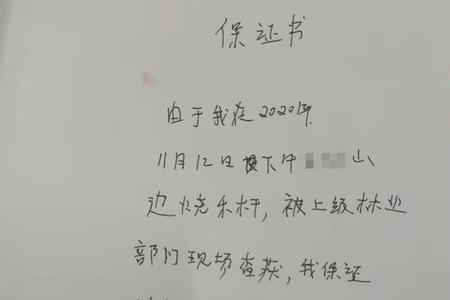 保证书
由于我在2020年
11月12日下午 山
边烧禾杆，被上级林业
部门现场查获，我保证